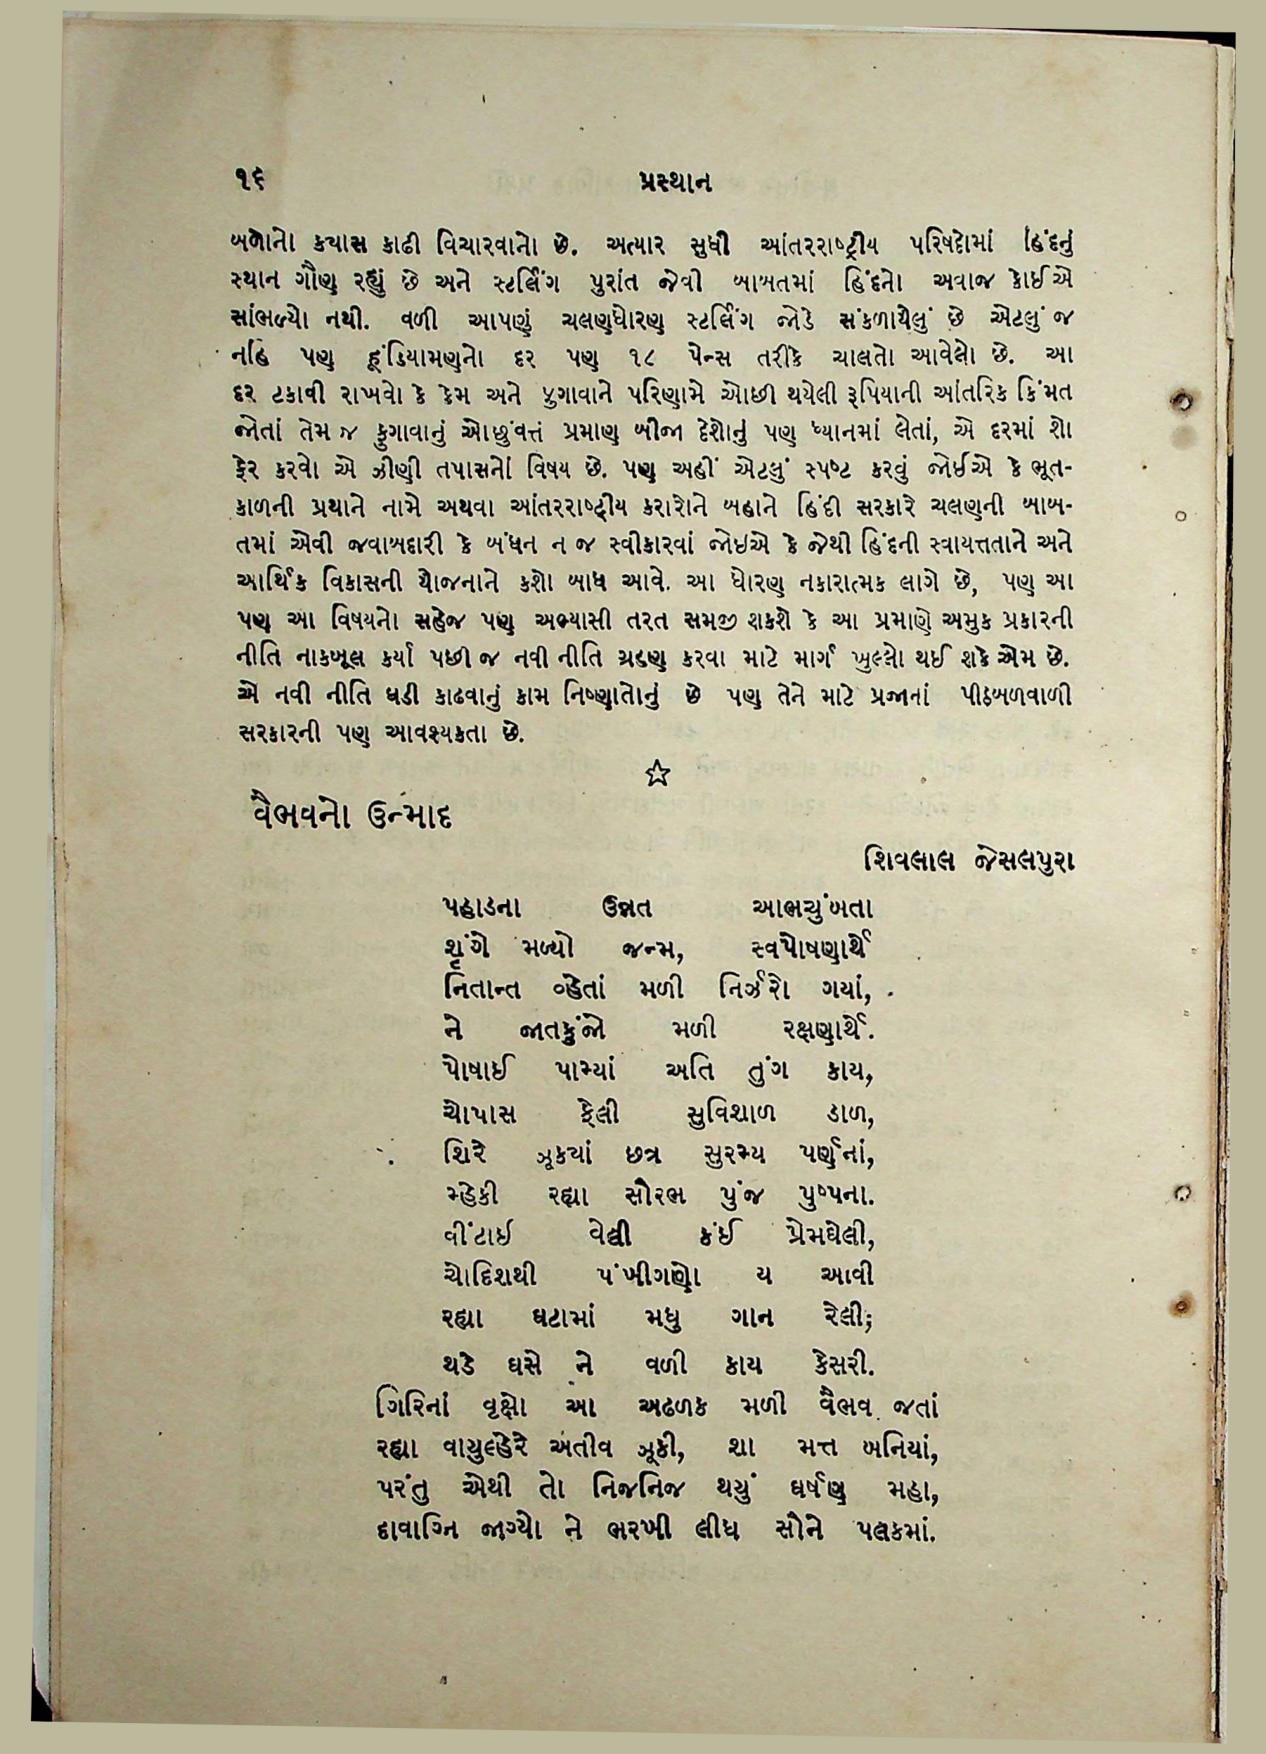 ૧૬ પ્રસ્થાન
બળોનો ક્યાસ કાઢી વિચારવાનો છે. અત્યાર સુધી આંતરરાષ્ટ્રીય પરિષદોમાં હિંદનું
સ્થાન ગૌણ રહ્યું છે અને સ્ટર્લિંગ પુરાંત જેવી બાબતમાં હિંદનો અવાજ કોઈએ
સાંભળ્યો નથી. વળી આપણું ચલણધોરણ સ્ટર્લિંગ જોડે સંકળાયેલું છે એટલું જ
નહિ પણ હૂંડિયામણનો દર પણ ૧૮ પેન્સ તરીકે ચાલતો આવેલો છે. આ
દર ટકાવી રાખવો કે કેમ અને ફુગાવાને પરિણામે ઓછી થયેલી રૂપિયાની આંતરિક કિંમત
જોતાં તેમ જ ફુગાવાનું ઓછુંવત્તું પ્રમાણ બીજા દેશોનું પણ ધ્યાનમાં લેતાં, એ દરમાં શો
ફેર કરવો એ ઝીણી તપાસનો વિષય છે. પણ અહીં એટલું સ્પષ્ટ કરવું જોઈએ કે ભૂત-
કાળની પ્રથાને નામે અથવા આંતરરાષ્ટ્રીય કરારોને બહાને હિંદી સરકારે ચલણની બાબ-
તમાં એવી જવાબદારી કે બંધન ન જ સ્વીકારવાં જોઇએ કે જેથી હિંદની સ્વાયત્તતાને અને
આર્થિક વિકાસની યોજનાને કશો બાધ આવે. આ ધોરણ નકારાત્મક લાગે છે, પણ આ
પણ આ વિષયનો સહેજ પણ અભ્યાસી તરત સમજી શકશે કે આ પ્રમાણે અમુક પ્રકારની
નીતિ નાકબૂલ કર્યા પછી જ નવી નીતિ ગ્રહણ કરવા માટે માર્ગ ખુલ્લો થઈ શકે એમ છે.
એ નવી નીતિ ઘડી કાઢવાનું કામ નિષ્ણાતોનું છે પણ તેને માટે પ્રજાનાં પીઠબળવાળી
સરકારની પણ આવશ્યકતા છે.
☆
વૈભવનો ઉન્માદ
શિવલાલ જેસલપુરા
પહાડના ઉન્નત આભચુંબતા
શૃંગે મળ્યો જન્મ, સ્વપોષણાર્થે
નિતાન્ત વ્હેતાં મળી નિર્ઝરો ગયાં,
ને જાતકુંજો મળી રક્ષણાર્થે.
પોષાઈ પામ્યાં અતિ તુંગ કાય,
ચોપાસ ફેલી સુવિશાળ ડાળ,
શિરે ઝૂક્યાં છત્ર સુરમ્ય પર્ણનાં,
મ્હેકી રહ્યા સૌરભ પુંજ પુષ્પના.
વીંટાઇ વેલી કંઈ પ્રેમઘેલી,
ચોદિશથી પંખીગણો ય આવી
રહ્યા ઘટામાં મધુ ગાન રેલી;
થડે ઘસે ને વળી કાય કેસરી.
ગિરિનાં વૃક્ષો આ અઢળક મળી વૈભવ જતાં
રહ્યા વાયુલ્હેરે અતીવ ઝૂકી, શા મત્ત બનિયાં,
પરંતુ એથી તો નિજનિજ થયું ઘર્ષણ મહા,
દાવાગ્નિ જાગ્યો ને ભરખી લીધ સૌને પલકમાં.